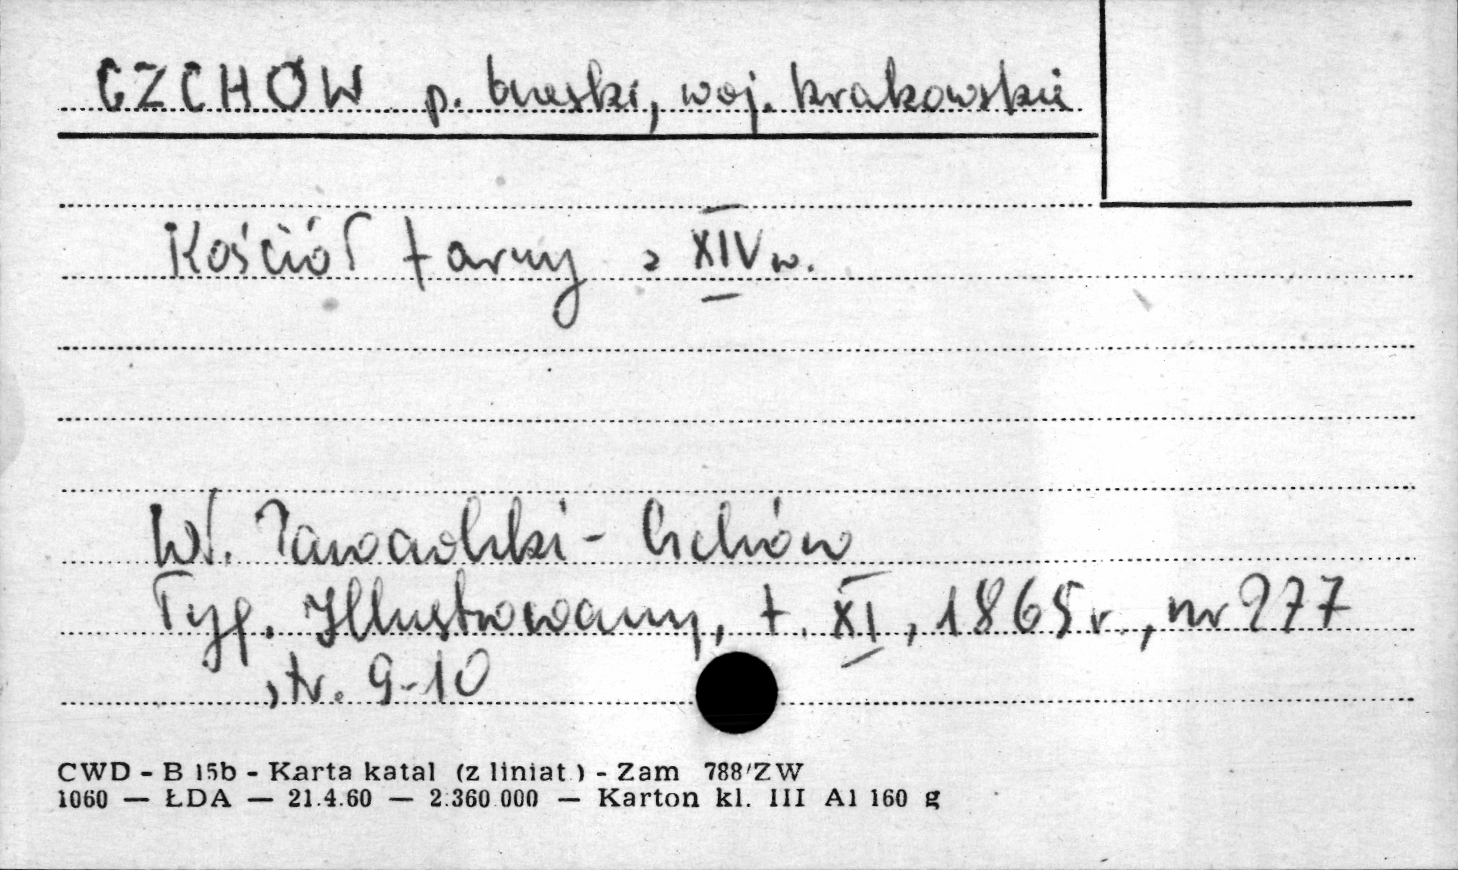 CZCHÓW p. brzeski, woj. krakowskie
Kościół farny z XIV w.
Wł. Zawadzki - Czchów
Tyg. Illustrowany, t. XI, 1865 r., nr 277
str. 9-10
CWD - B 15b - Karta katal (z liniat.) - Zam 788/ZW
1060 — ŁDA — 21.4.60 — 2.360.000 — Karton kl. III A1 160 g